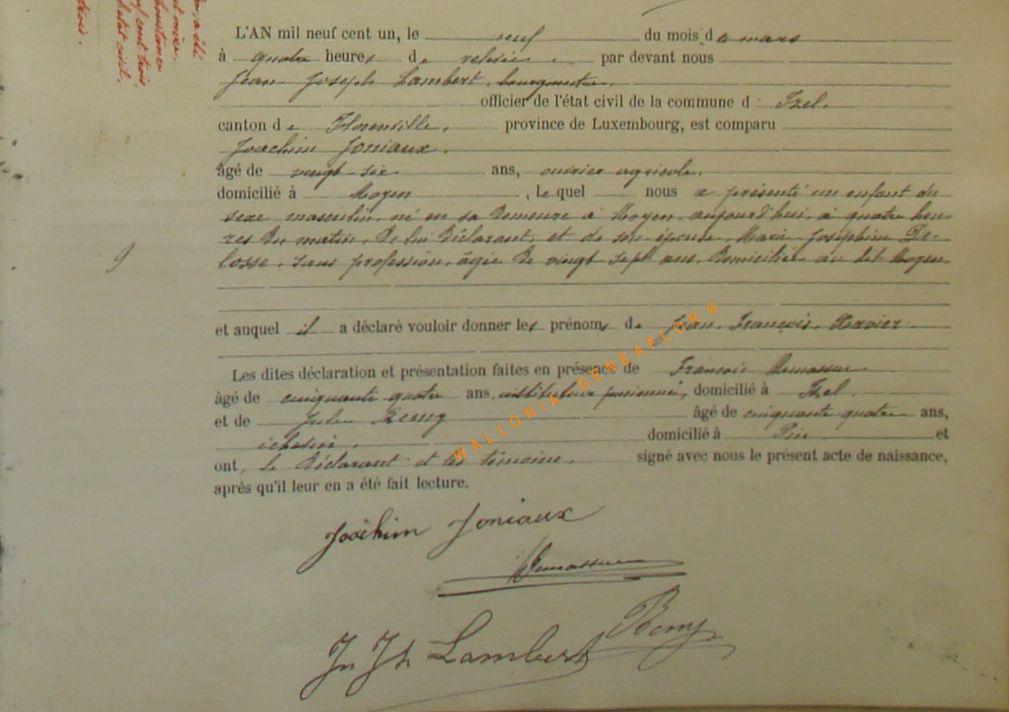 L'AN mil neuf cent un, le neuf du mois de mars
à quatre heures de relevée, par devant nous
Jean Joseph Lambert, bourgmestre
officier de l'état civil de la commune d' Izel,
canton de Florenville, province de Luxembourg, est comparu
Joachim Joniaux,
âgé de vingt six ans, ouvrier agricole,
domicilié à Moyen, le quel nous a présenté un enfant du
sexe masculin, né en sa demeure à Moyen, aujourd'hui, à quatre heu-
res du matin, de lui déclarant, et de son épouse, Marie Joséphine De-
losse, sans profession, âgée de vingt sept ans, domiciliée au dit Moyen,
9
et auquel il a déclaré vouloir donner les prénoms de Jean, François, Xavier.
Les dites déclaration et présentation faites en présence de François
âgé de cinquante quatre ans, instituteur pensionné, domicilié à Izel
et de Jules Remy âgé de cinquante quatre ans,
domicilié à Pin et
ont, le déclarant et les témoins, signé avec nous le présent acte de naissance,
après qu'il leur en a été fait lecture.
Joachim Joniaux
Remy
Jn Jh Lambert
WALLONIA-GENEAFLOR®